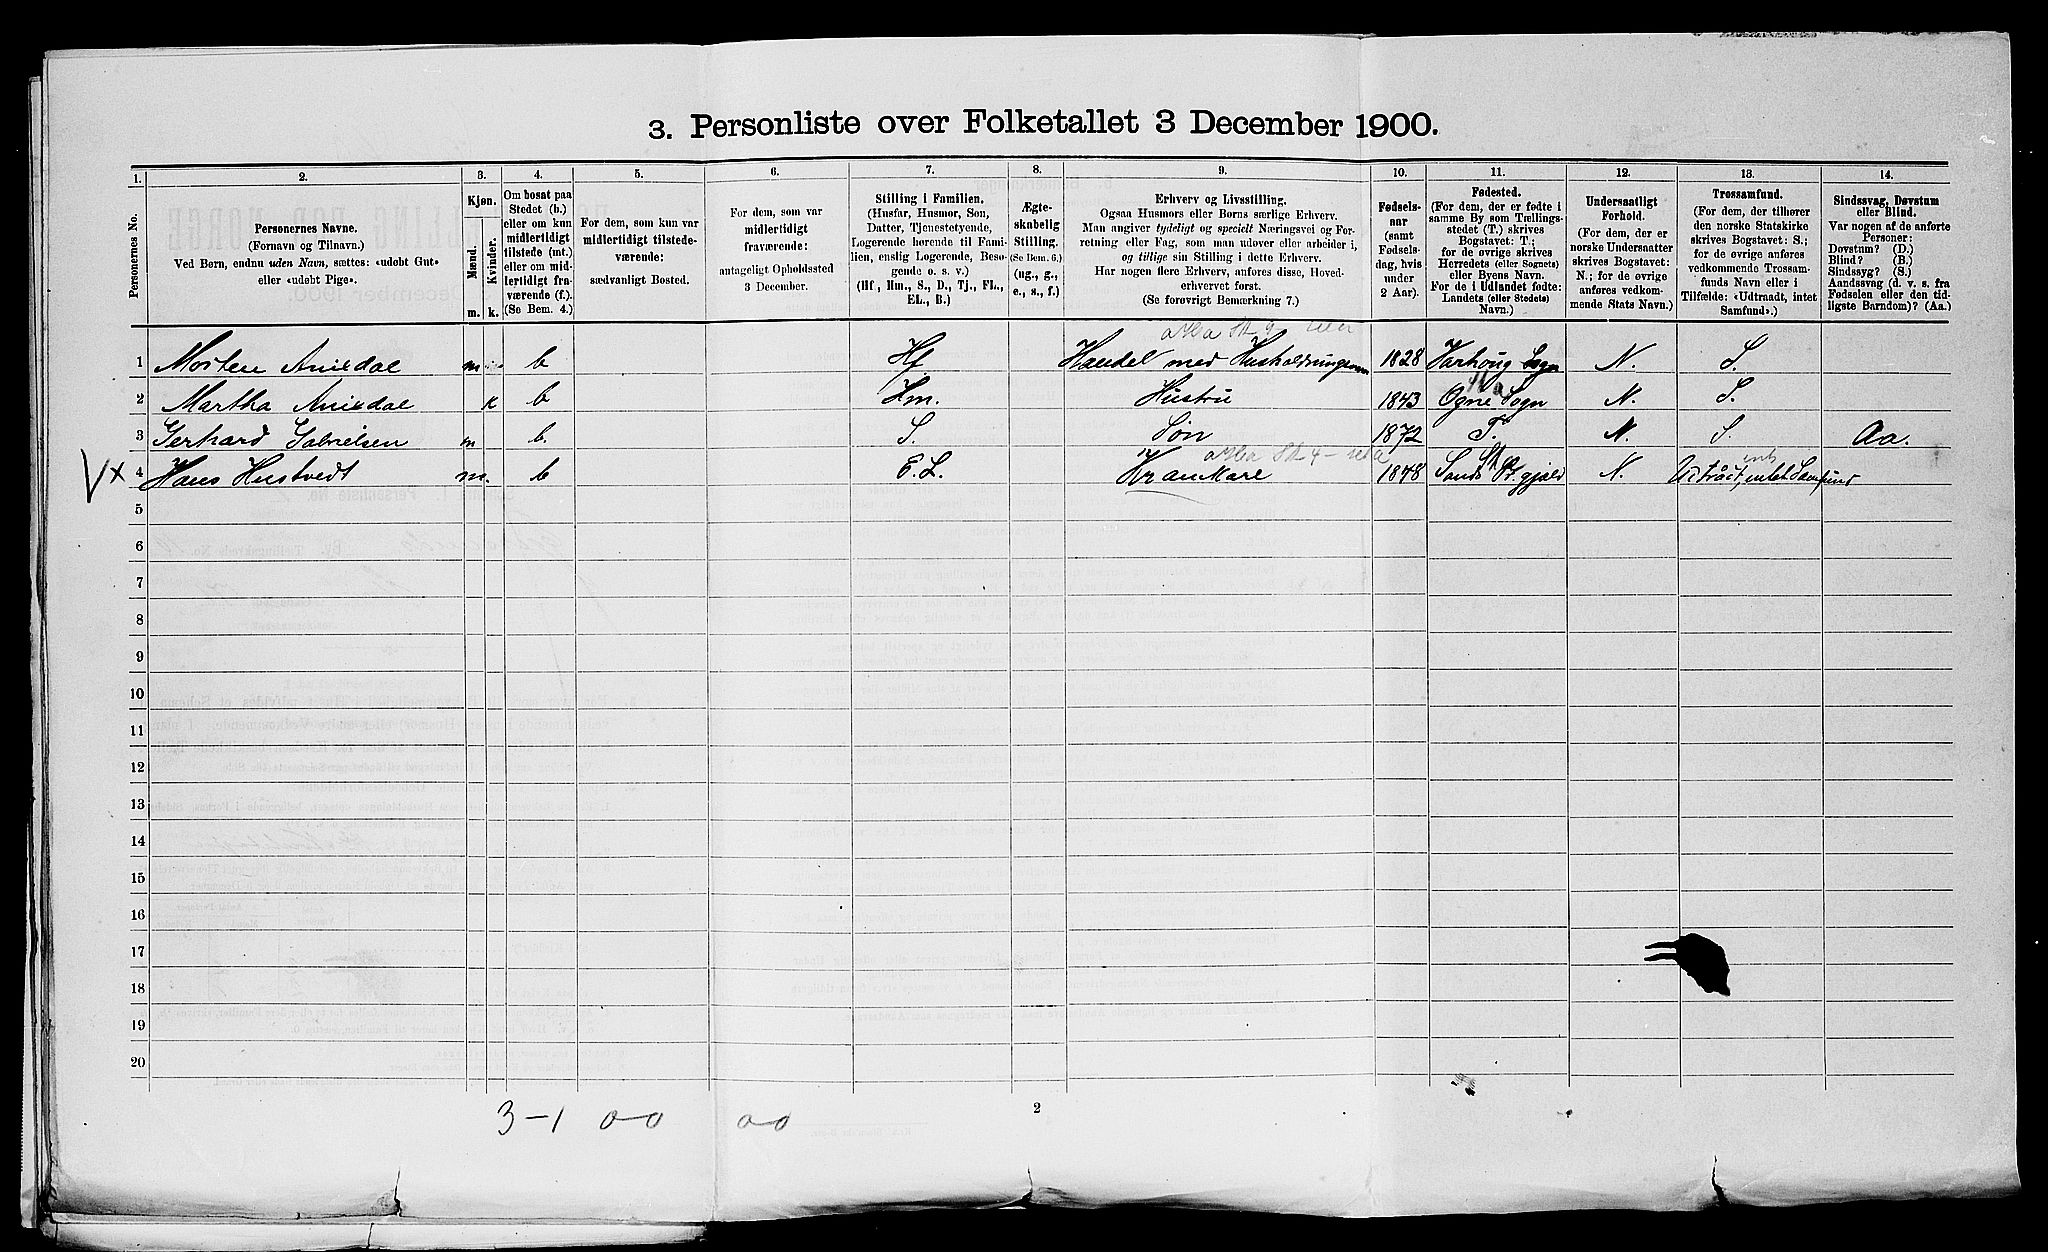 3. Personliste over Folketallet 3 December 1900.
1. 2. 3. 4. 5. 6. 7. 8. 9. 10. 11. 12. 13. 14.
Personernes No.
Personernes Navne.
(Fornavn og Tilnavn.)
Ved Børn, endnu uden Navn, sættes: «udøbt Gut»
eller «udøbt Pige».
Kjøn.
Mænd.
Kvinder.
m. k.
Om bosat paa
Stedet (b.)
eller om kun
midlertidigt
tilstede (mt.)
eller om mid-
lertidigt fra-
værende (f.).
(Se Bem. 4.)
For dem, som kun var
midlertidigt tilstede-
værende:
sædvanligt Bosted.
For dem, som var
midlertidigt
fraværende:
antageligt Opholdssted
3 December.
Stilling i Familien.
(Husfar, Husmor, Søn,
Datter, Tjenestetyende,
Logerende hørende til Fami-
lien, enslig Logerende, Besø-
gende o. s. v.)
(Hf, Hm., S., D., Tj., FL.,
EL., B.)
Ægte-
skabelig
Stilling.
(Se Bem. 6.)
(ug., g.,
e., s., f.)
Erhverv og Livsstilling.
Ogsaa Husmors eller Børns særlige Erhverv.
Man angiver tydeligt og specielt Næringsvei og For-
retning eller Fag, som man udøver eller arbeider i,
og tillige sin Stilling i dette Erhverv.
Har nogen flere Erhverv, anføres disse, Hoved-
erhvervet først.
(Se forøvrigt Bemærkning 7.)
Fødsels-
aar
(samt
Fødsels-
dag, hvis
under
2 Aar).
Fødested.
(For dem, der er fødte i
samme By som Tællings-
stedet (T.) skrives
Bogstavet: T.;
for de øvrige skrives
Herredets (eller Sognets)
eller Byens Navn.
For de i Udlandet fødte:
Landets (eller Stedets)
Navn.)
Undersaatligt
Forhold.
(For dem, der er
norske Undersaatter
skrives Bogstavet:
N.; for de øvrige
anføres vedkom-
mende Stats Navn.)
Trossamfund.
(For dem, der tilhører
den norske Statskirke
skrives Bogstavet: S.;
for de øvrige anføres
vedkommende Trossam-
funds Navn eller i
Tilfælde: «Udtraadt, intet
Samfund».)
Sindssvag, Døvstum
eller Blind.
Var nogen af de anførte
Personer:
Døvstum? (D.)
Blind? (B.)
Sindssyg? (S.)
Aandssvag (d. v. s. fra
Fødselen eller den tid-
ligste Barndom)? (Aa.)
1 Morten Aniksdal m b Hf Handel med Husholdningsv. 1828 Varhoug Sogn N. S.
2 Martha Aniksdal k b Hm. Hustru 1843 Ogne Sogn N. S.
3 Gerhard Gabrielsen m b. S. Søn 1872 T. N. S. Aa.
V× 4 Hans Hustvedt m. b E. L. Kramkare 1848 Sands Pr.gjeld N. Udtrådt, intet Samfund
5
6
7
8
9
10
11
12
13
14
15
16
17
18
19
20
3-1 0-0 0-0
2